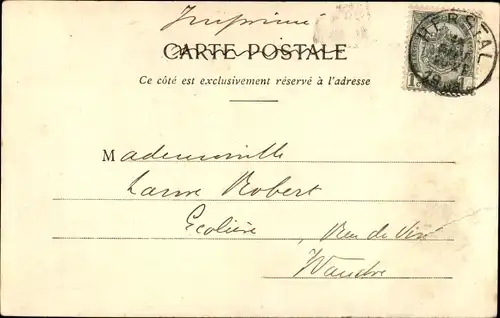 Imprimé
CARTE POSTALE
HERSTAL
1
Ce côté est exclusivement réservé à l'adresse
Mademoiselle
Robert
Ecolière, Rue de
Wandre